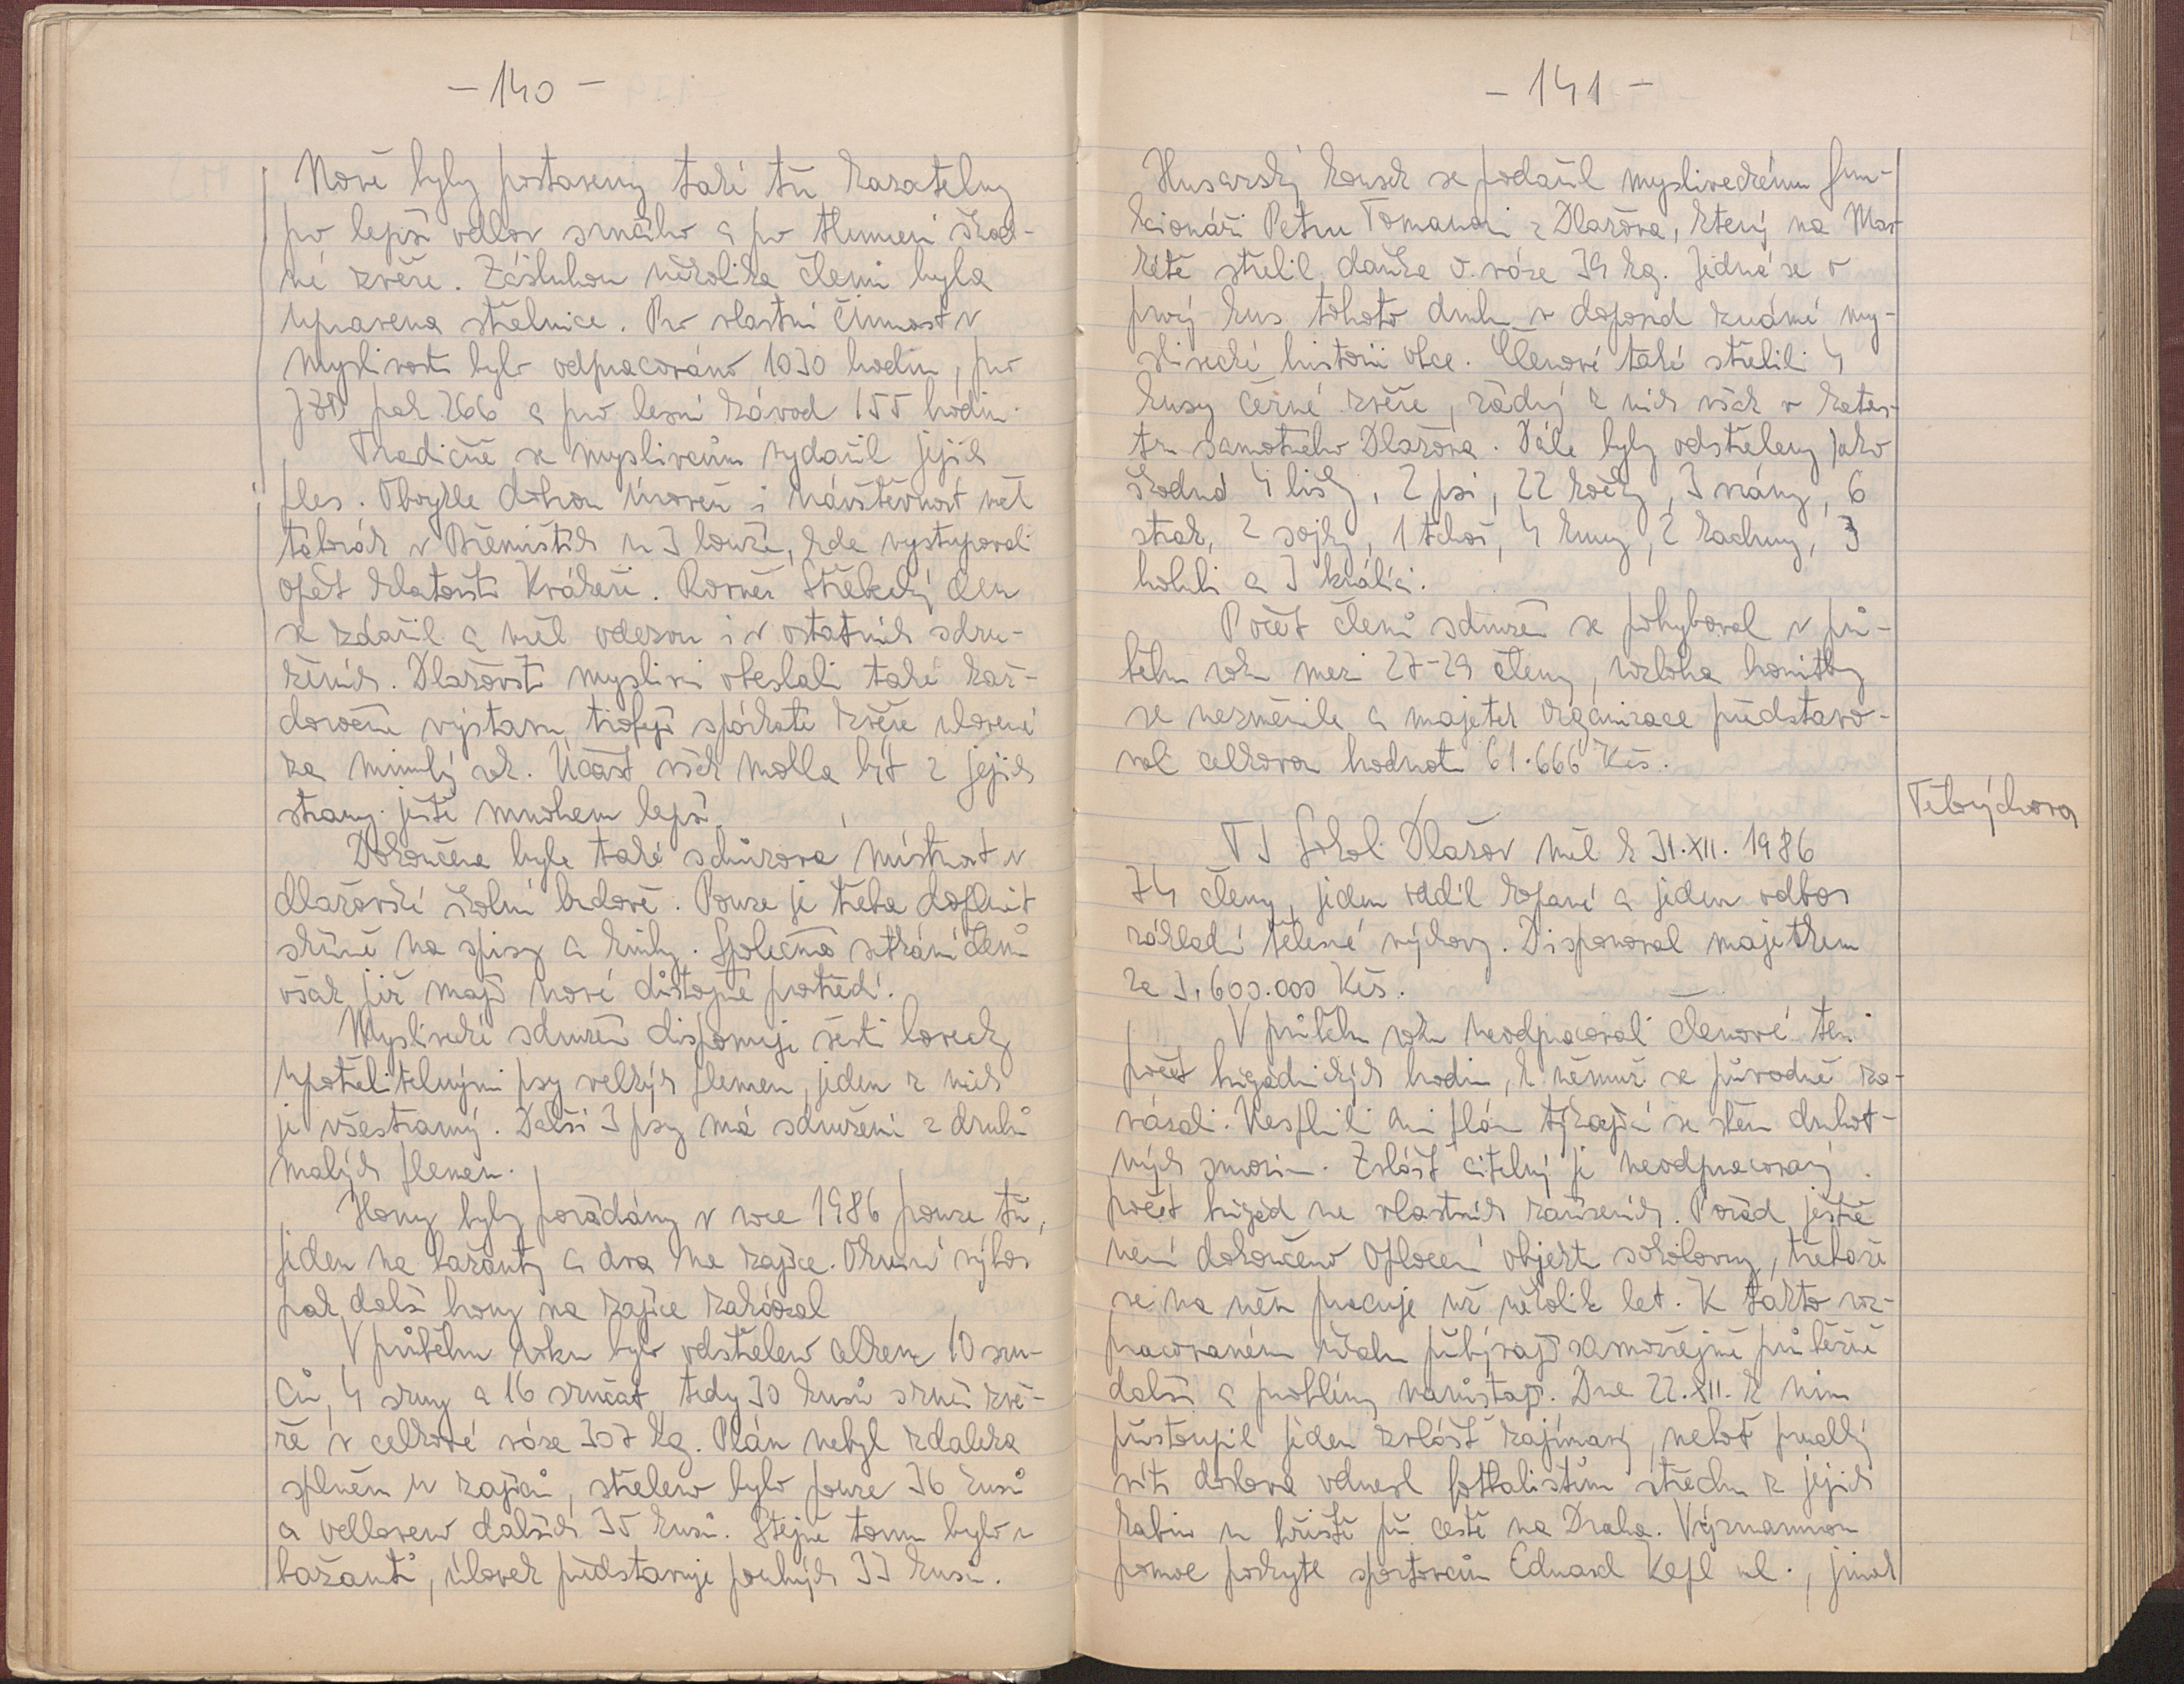 - 140 -
Nově byly postaveny také tři kazatelny
pro lepší odlov srnčího a pro tlumení škod-
né zvěře. Zásluhou několika členů byla
upravena střelnice. Pro vlastní činnost v
myslivosti bylo odpracováno 1030 hodin, pro
JZD pak 266 a pro lesní závod 155 hodin.
Tradičně se myslivcům vydařil jejich
ples. Obvykle dobrou úroveň i návštěvnost měl
táborák v Běhništích u 3 bouří, kde vystupovali
opět klatovští Kvákeři. Rovněž Střelecký den
se zdařil a měl odezvu i v ostatních sdru-
ženích. Dlažovští myslivci obeslali také kaž-
doroční výstavu trofejí spárkaté zvěře ulovené
za minulý rok. Účast však mohla být z jejich
strany ještě mnohem lepší.
Dokončena byla také schůzová místnost v
dlažovské školní budově. Pouze je třeba doplnit
skříně na spisy a knihy. Společná setkání členů
však již mají nové důstojné prostředí.
Myslivecké sdružení disponuje šesti lovecky
upotřebitelnými psy velkých plemen, jeden z nich
je všestranný. Další 3 psy má sdružení z druhů
malých plemen.
Hony byly pořádány v roce 1986 pouze tři,
jeden na bažanty a dva na zajíce. Okresní výbor
pak další hony na zajíce zakázal
V průběhu roku bylo odstřeleno celkem 10 srn-
ců, 4 srny a 16 srnčat, tedy 30 kusů srnčí zvě-
ře v celkové váze 307 kg. Plán nebyl zdaleka
splněn u zajíců, střeleno bylo pouze 36 kusů
a odloveno dalších 35 kusů. Stejně tomu bylo u
bažantů, úlovek představuje pouhých 33 kusů.
- 141 -
Husarský kousek se podařil mysliveckému fun-
kcionáři Petru Tomanovi z Dlažova, který na Mar-
kétě střelil daňka o váze 39 kg. Jedná se o
prvý kus tohoto druhu v doposud známé my-
slivecké historii obce. Členové také střelili 4
kusy černé zvěře, žádný z nich však v katas-
tru samotného Dlažova. Dále byly odstřeleny jako
škodná 4 lišky, 2 psi, 22 kočky, 3 vrány, 6
strak, 2 sojky, 1 tchoř, 4 kuny, 2 kachny, 3
holubi a 3 králíci.
Počet členů sdružení se pohyboval v prů-
běhu roku mezi 27-29 členy, rozloha honitby
se nezměnila a majetek organizace představo-
val celkovou hodnotu 61.666 Kčs.
Tělovýchova
TJ Sokol Dlažov měl k 31.XII. 1986
74 členy, jeden oddíl kopané a jeden odbor
základní tělesné výchovy. Disponoval majetkem
za 3.600.000 Kčs.
V průběhu roku neodpracovali členové ten
počet brigádnických hodin, k němuž se původně za-
vázali. Nesplnili ani plán týkající se sběru druhot-
ných surovin. Zvlášť citelný je neodpracovaný
počet brigád na vlastních zařízeních. Pořád ještě
není dokončeno oplocení objektu sokolovny, třebaže
se na něm pracuje už několik let. K takto roz-
pracovaném úkolu přibývají samozřejmě průběžně
další a problémy narůstají. Dne 22.XII. k nim
přistoupil jeden zvlášť zajímavý, neboť prudký
vítr doslova odnesl fotbalistům střechu z jejich
kabin u hřiště při cestě na Draha. Významnou
pomoc poskytl sportovcům Eduard Kepl ml., jinak